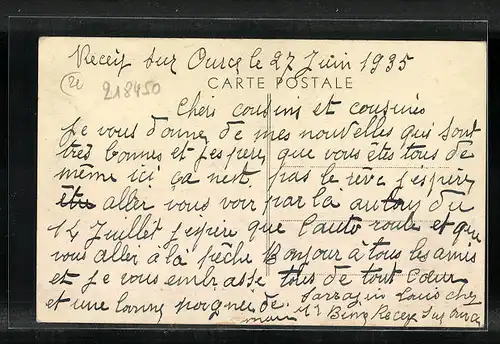 Recey sur Ource le 27 Juin 1935
CARTE POSTALE
218450
Chers cousins et cousines
Je vous donne de mes nouvelles qui sont
très bonnes et J'espere que vous êtes tous de
même ici ça nest pas le rêve J'espère
être aller vous voir par la autour du
14 Juillet J'espere que l'auto roule et que
vous aller à la pêche Bonjour à tous les amis
et Je vous embrasse tous de tout Cœur
et une bonne poignee de Sarrazin Louis chez
main Mr Bing Recey sur Ource